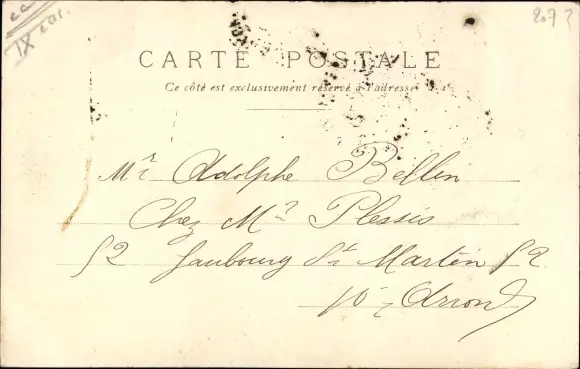 CARTE POSTALE
Ce côté est exclusivement réservé à l'adresse
Mr Adolphe Bellin
Chez Mr Plessis
52 faubourg St Martin 52
10e Arrond